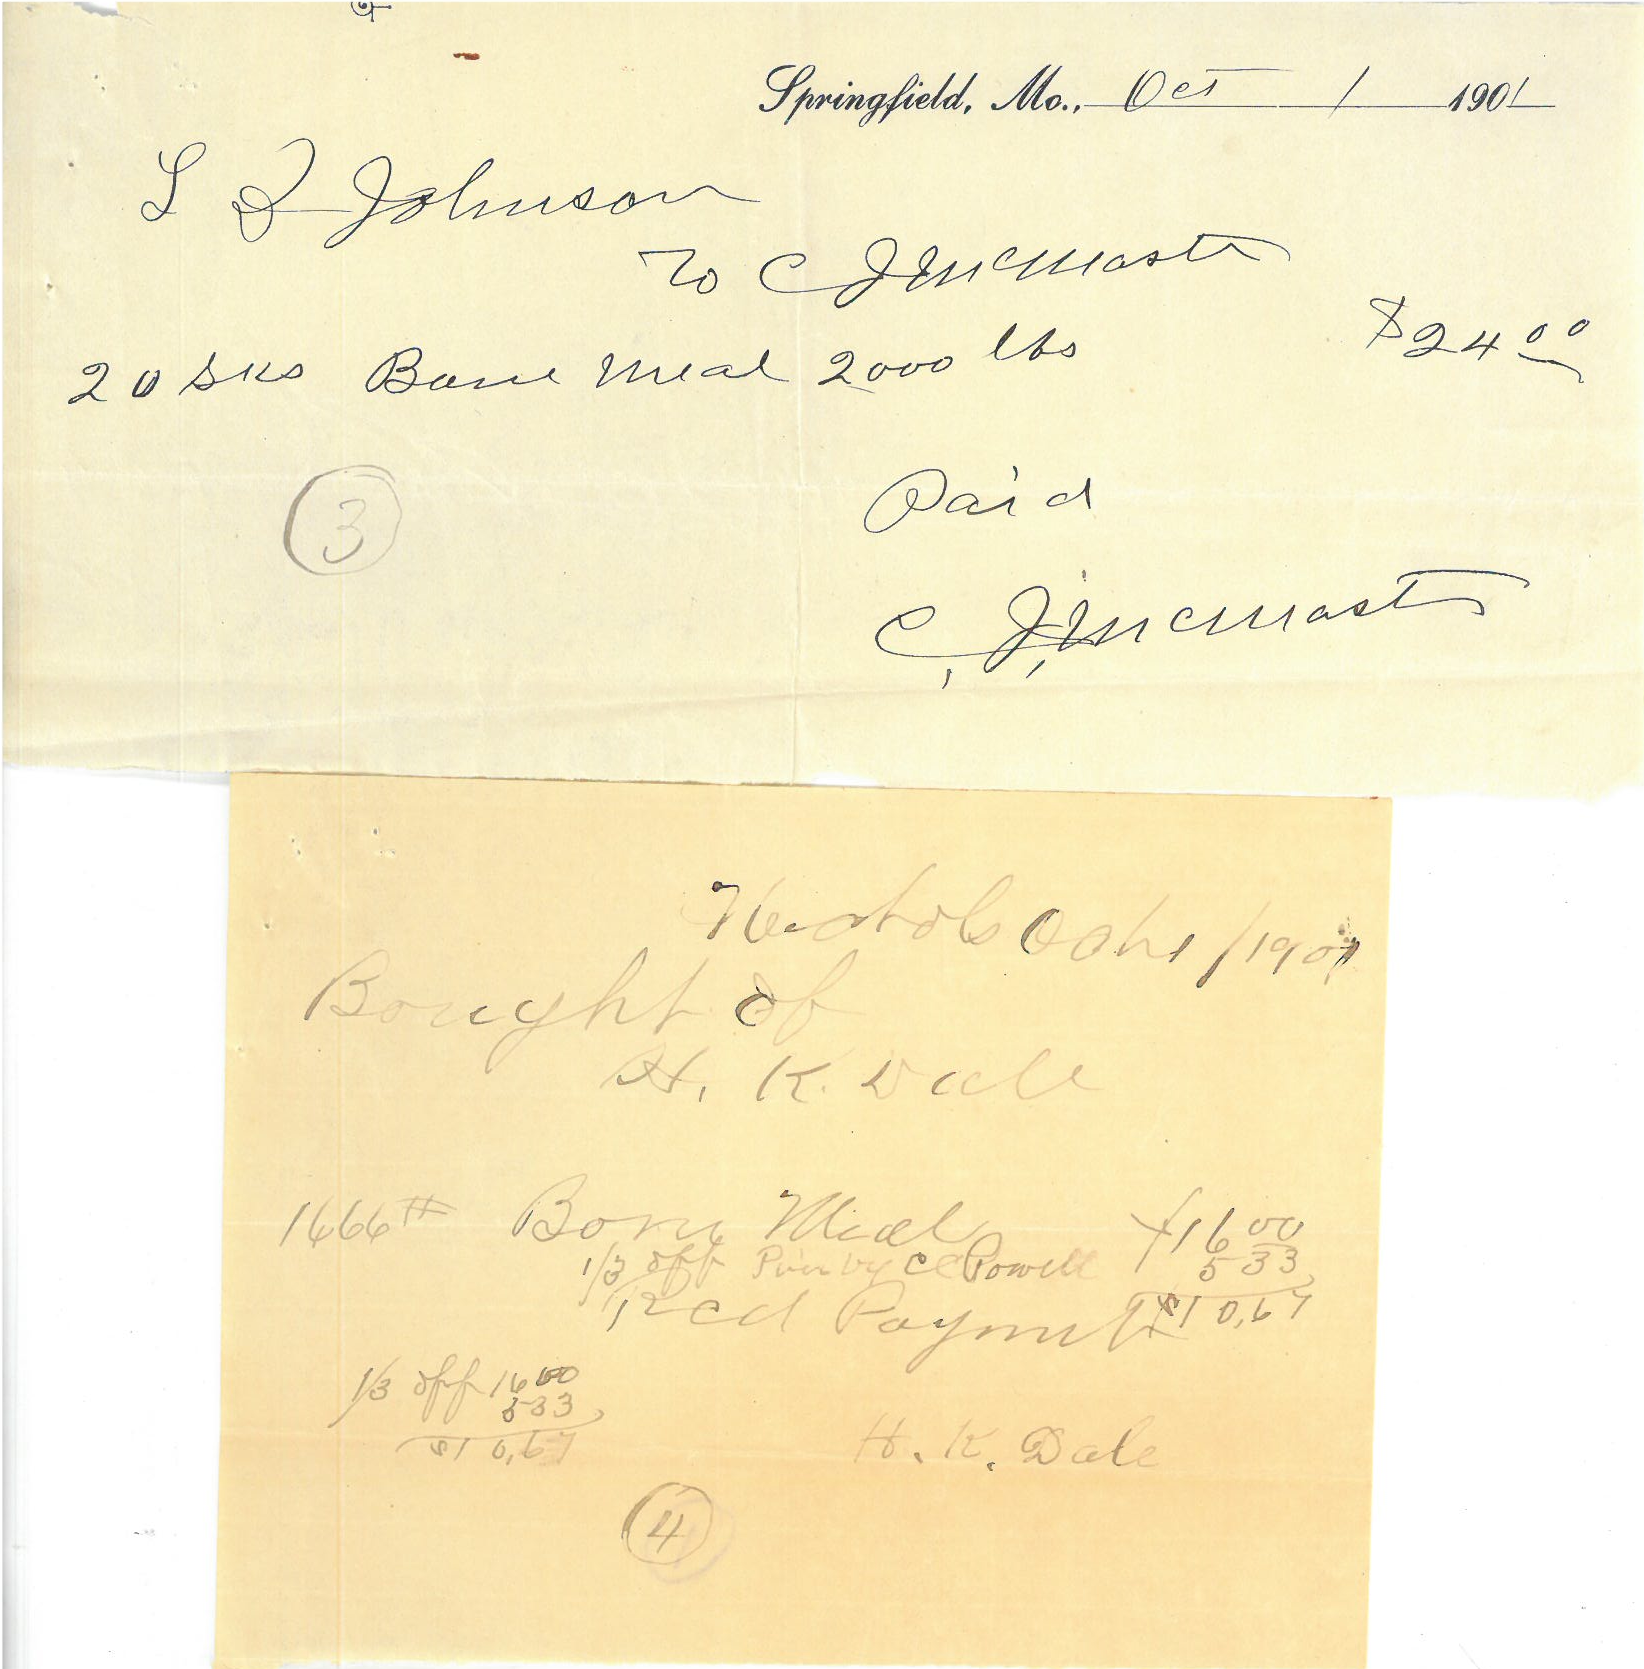 Springfield, Mo., Oct 1 1901
L Johnson
To C J McMaster
20 sks Bone Meal 2000 lbs $24 00
3
Paid
C. J. McMaster
Nichols Oct 1/1901
Bought of
H. K. Dale
1666 # Bone Meal $16 00
1/3 off by CC Powell 5 33
Recd Payment $10,67
1/3 off 16 00
5 33
$10,67
H. K. Dale
4